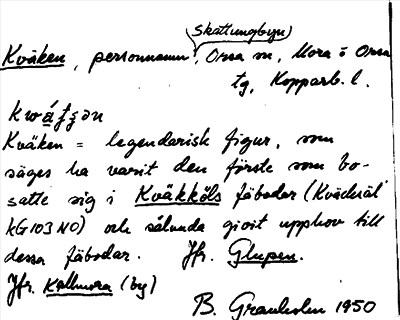 Skattungbyn
Kväken, personnamn, Orsa sn, Mora o Orsa
tg, Kopparb. l.
Kväken = legendarisk figur, som
säges ha varit den förste som bo-
satte sig i Kväkköls fäbodar (
KG103 NO) och sålunda givit upphov till
dessa fäbodar. Jfr. Glupen.
Jfr. Kallmora (by)
B. Granholm 1950